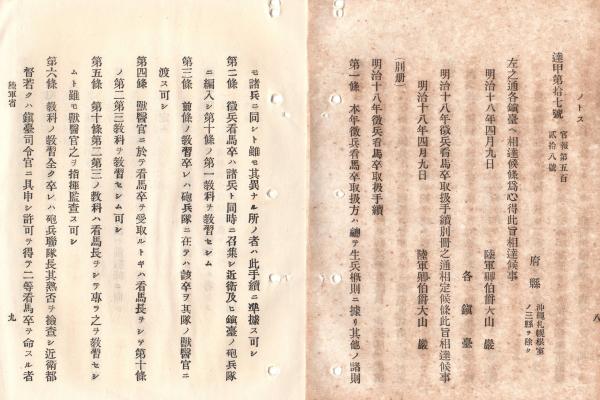 ノトス
達甲第拾七號
官報第五百
貳拾八號
府縣
沖繩札幌根室
ノ三縣ヲ除ク
左之通各鎭臺ヘ相達候條爲心得此旨相達候事
明治十八年四月九日
陸軍卿伯爵大山 巖
各鎭臺
明治十八年徵兵看馬卒取扱手續別冊之通相定候條此旨相達候事
明治十八年四月九日
陸軍卿伯爵大山 巖
別冊
明治十八年徵兵看馬卒取扱手續
第一條 本年徵兵看馬卒取扱方ハ總テ生兵槪則ニ據リ其他ノ諸則
八
モ諸兵ニ同シト雖モ其異ナル所ノ者ハ此手續ニ準據ス可シ
第二條 徵兵看馬卒ハ諸兵ト同時ニ召集シ近衞及ヒ鎭臺ノ砲兵隊
ニ編入シ第十條ノ第一敎科ヲ敎習セシム
第三條 前條ノ敎習卒レハ砲兵隊ニ在テハ該卒ヲ其隊ノ獸醫官ニ
渡ス可シ
第四條 獸醫官ニ於テ看馬卒ヲ受取ルトキハ看馬長ヲシテ第十條
ノ第二第三敎科ヲ敎習セシム可シ
第五條 第十條第二第三ノ敎科ハ看馬長ヲシテ專ラ之ヲ敎習セシ
ムト雖モ獸醫官之ヲ指揮監査ス可シ
第六條 敎科ノ敎習全ク卒レハ砲兵聯隊長其熟否ヲ檢査シ近衞都
督若クハ鎭臺司令官ニ具申シ許可ヲ得テ二等看馬卒ヲ命スル者
陸軍省
九